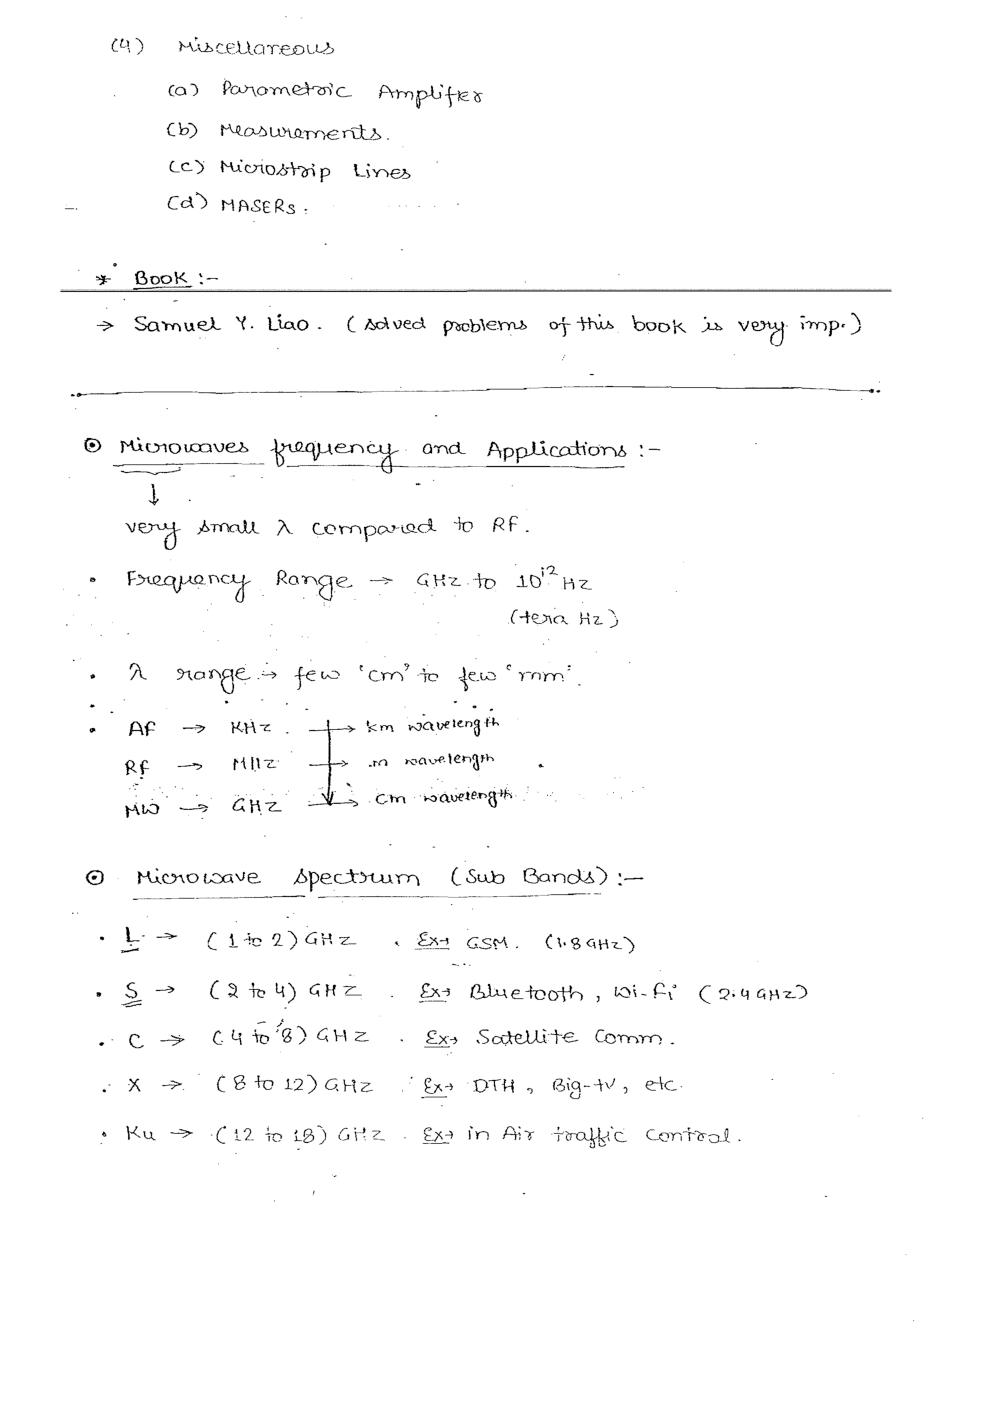 (4) Miscellareous
(a) Parametric Amplifier
(b) Measurements.
(c) Microstrip Lines
(d) MASERs.
* Book :-
→ Samuel Y. Liao. (solved problems of this book is very imp.)
⊙ Microwaves frequency and Applications :-
↓
very small λ compared to RF.
• Frequency Range → GHz to 10¹² Hz
(tera Hz)
• λ range → few 'cm' to few 'mm'.
• AF → KHz. → km wavelength
RF → MHz → m wavelength
MW → GHz → cm wavelength
⊙ Microwave Spectrum (Sub Bands) :-
• L → (1 to 2) GHz. Ex→ GSM. (1.8 GHz)
• S → (2 to 4) GHz. Ex→ Bluetooth, Wi-Fi (2.4 GHz)
• C → (4 to 8) GHz. Ex→ Satellite Comm.
• X → (8 to 12) GHz Ex→ DTH, Big-tv, etc.
• Ku → (12 to 18) GHz. Ex→ in Air traffic Control.